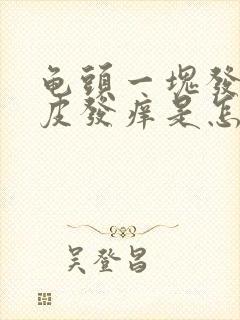 龟頭一塊發
皮發痒是怎
吴登昌